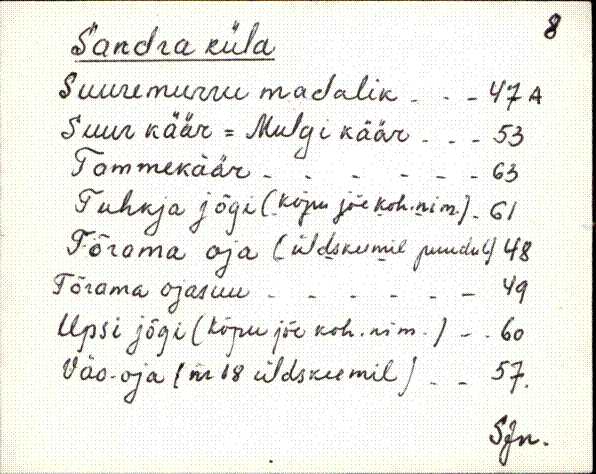 8
Sandra küla
Suuremurru madalik . - - 47 A
Suur käär = Mulgi käär . - - 53
Tammekäär - - - - - - 63
Tuhkja jõgi (Kõpu jõe koh.nim.) - 61
Tõrama oja (üldskeemil puudub) 48
Tõrama ojasuu - - - - - - 49
Upsi jõgi (Kõpu jõe koh. nim.) - - 60
Väo-oja (nr 18 üldskeemil) - - 57.